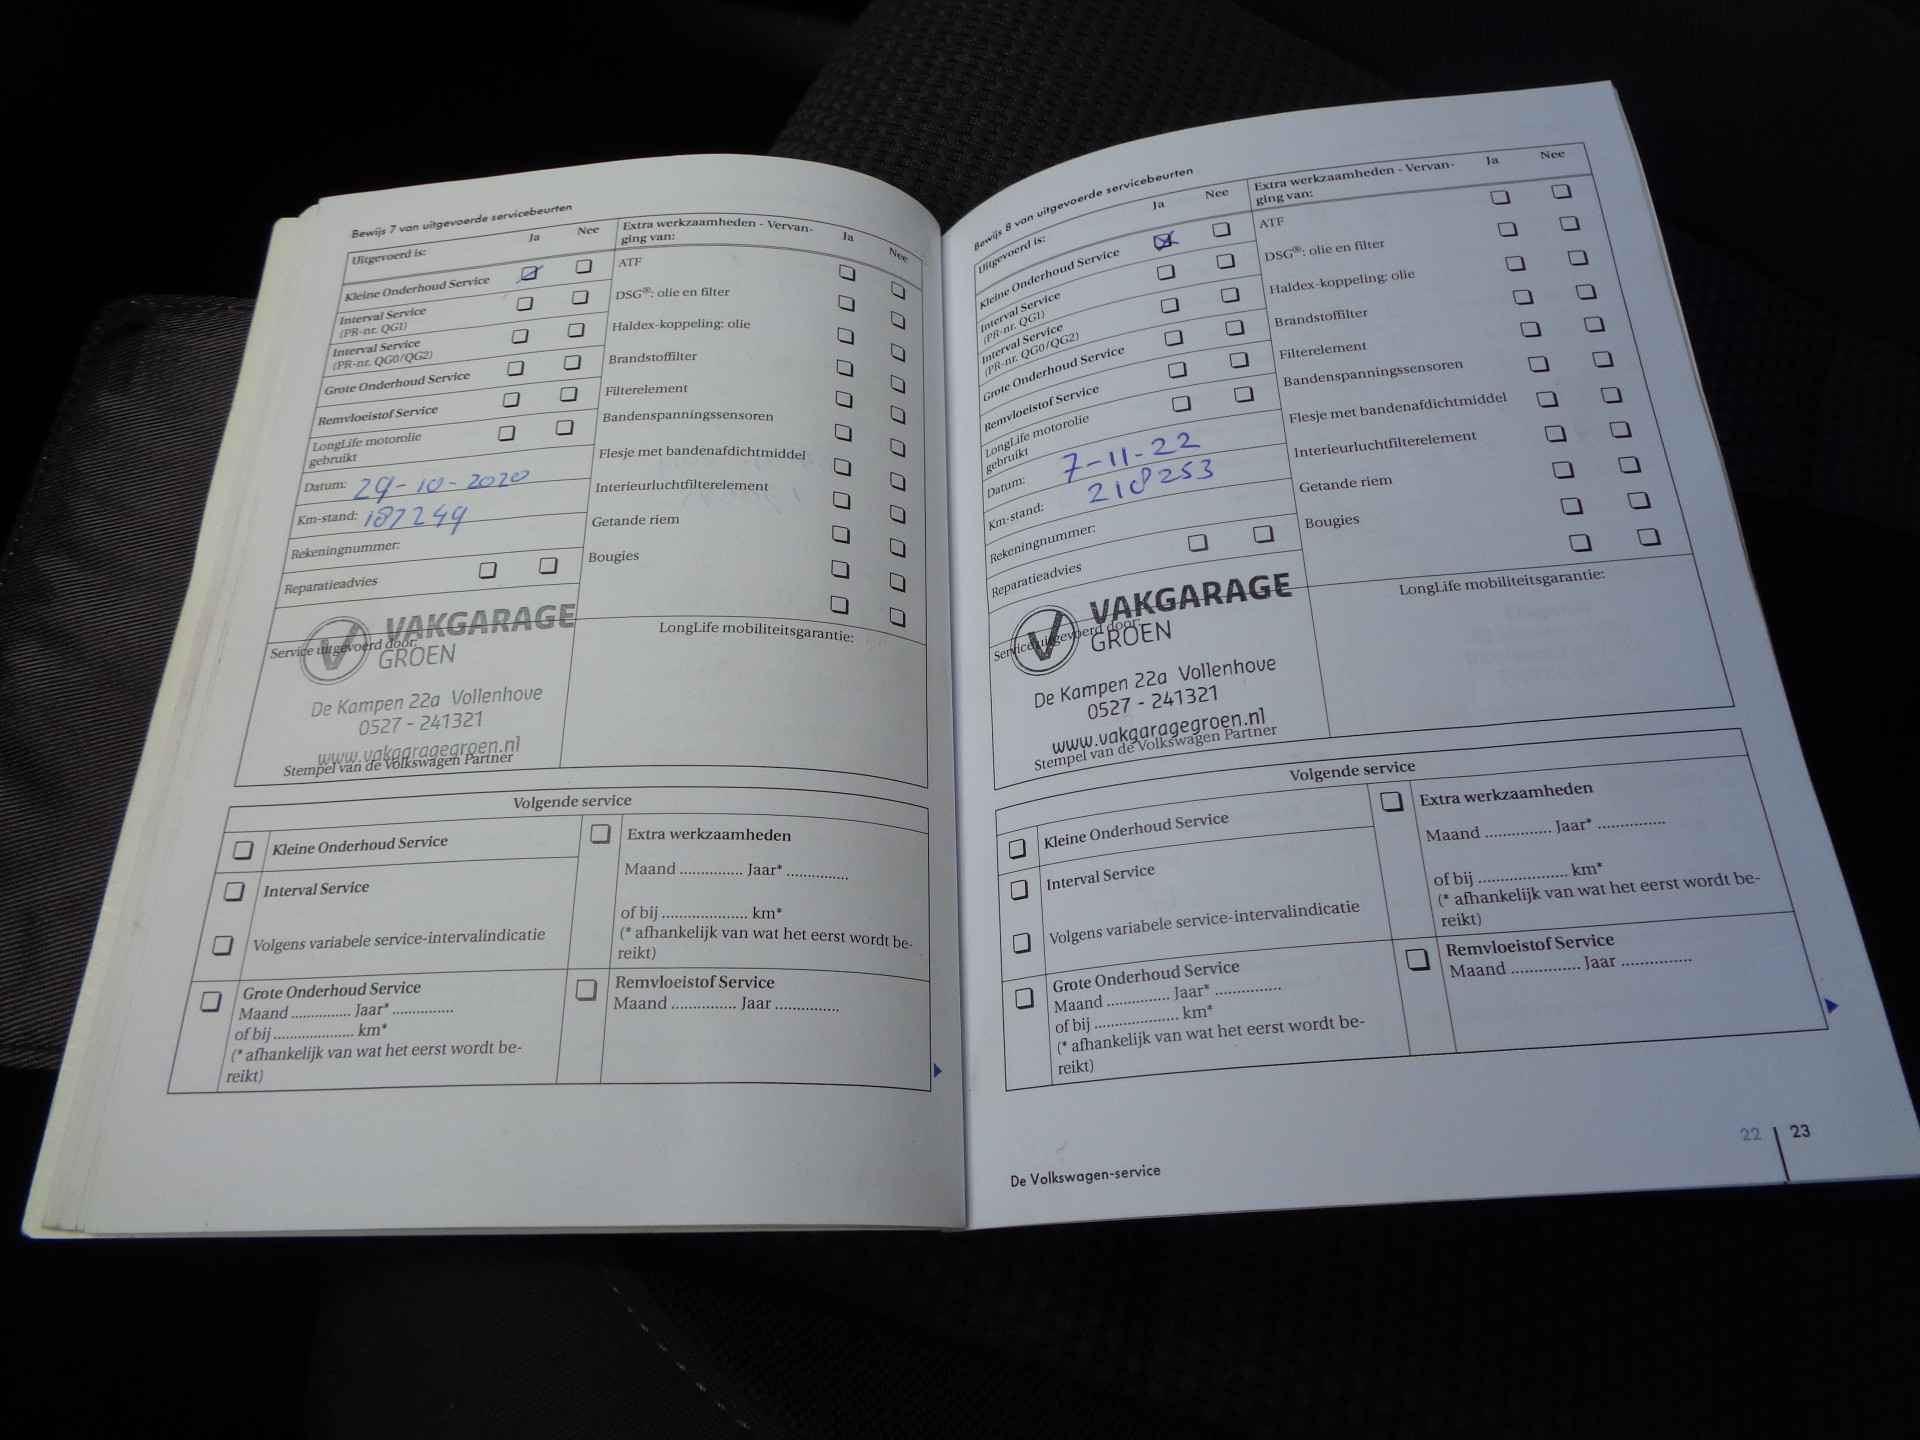 Bewijs 7 van uitgevoerde servicebeurten
Uitgevoerd is:
Ja
Nee
Extra werkzaamheden - Vervan-
ging van:
Ja
Nee
Kleine Onderhoud Service
Interval Service
(PR-nr. QG1)
Interval Service
(PR-nr. QG0/QG2)
Grote Onderhoud Service
Remvloeistof Service
LongLife motorolie
gebruikt
Datum: 29-10-2020
Km-stand: 187249
Rekeningnummer:
Reparatieadvies
ATF
DSG®: olie en filter
Haldex-koppeling: olie
Brandstoffilter
Filterelement
Bandenspanningssensoren
Flesje met bandenafdichtmiddel
Interieurluchtfilterelement
Getande riem
Bougies
Service uitgevoerd door:
VAKGARAGE
GROEN
De Kampen 22a Vollenhove
0527 - 241321
www.vakgaragegroen.nl
Stempel van de Volkswagen Partner
LongLife mobiliteitsgarantie:
Volgende service
Kleine Onderhoud Service
Interval Service
Volgens variabele service-intervalindicatie
Grote Onderhoud Service
Maand ............... Jaar* ...............
of bij .................... km*
(* afhankelijk van wat het eerst wordt be-
reikt)
Extra werkzaamheden
Maand ............... Jaar* ...............
of bij ..................... km*
(* afhankelijk van wat het eerst wordt be-
reikt)
Remvloeistof Service
Maand ............... Jaar ...............
Bewijs 8 van uitgevoerde servicebeurten
Uitgevoerd is:
Ja
Nee
Extra werkzaamheden - Vervan-
ging van:
Ja
Nee
Kleine Onderhoud Service
Interval Service
(PR-nr. QG1)
Interval Service
(PR-nr. QG0/QG2)
Grote Onderhoud Service
Remvloeistof Service
LongLife motorolie
gebruikt
Datum: 7-11-22
Km-stand: 218253
Rekeningnummer:
Reparatieadvies
ATF
DSG®: olie en filter
Haldex-koppeling: olie
Brandstoffilter
Filterelement
Bandenspanningssensoren
Flesje met bandenafdichtmiddel
Interieurluchtfilterelement
Getande riem
Bougies
Service uitgevoerd door:
VAKGARAGE
GROEN
De Kampen 22a Vollenhove
0527 - 241321
www.vakgaragegroen.nl
Stempel van de Volkswagen Partner
LongLife mobiliteitsgarantie:
Volgende service
Kleine Onderhoud Service
Interval Service
Volgens variabele service-intervalindicatie
Grote Onderhoud Service
Maand ............... Jaar* ...............
of bij .................... km*
(* afhankelijk van wat het eerst wordt be-
reikt)
Extra werkzaamheden
Maand ............... Jaar* ...............
of bij .................... km*
(* afhankelijk van wat het eerst wordt be-
reikt)
Remvloeistof Service
Maand ............... Jaar ...............
De Volkswagen-service
22 23